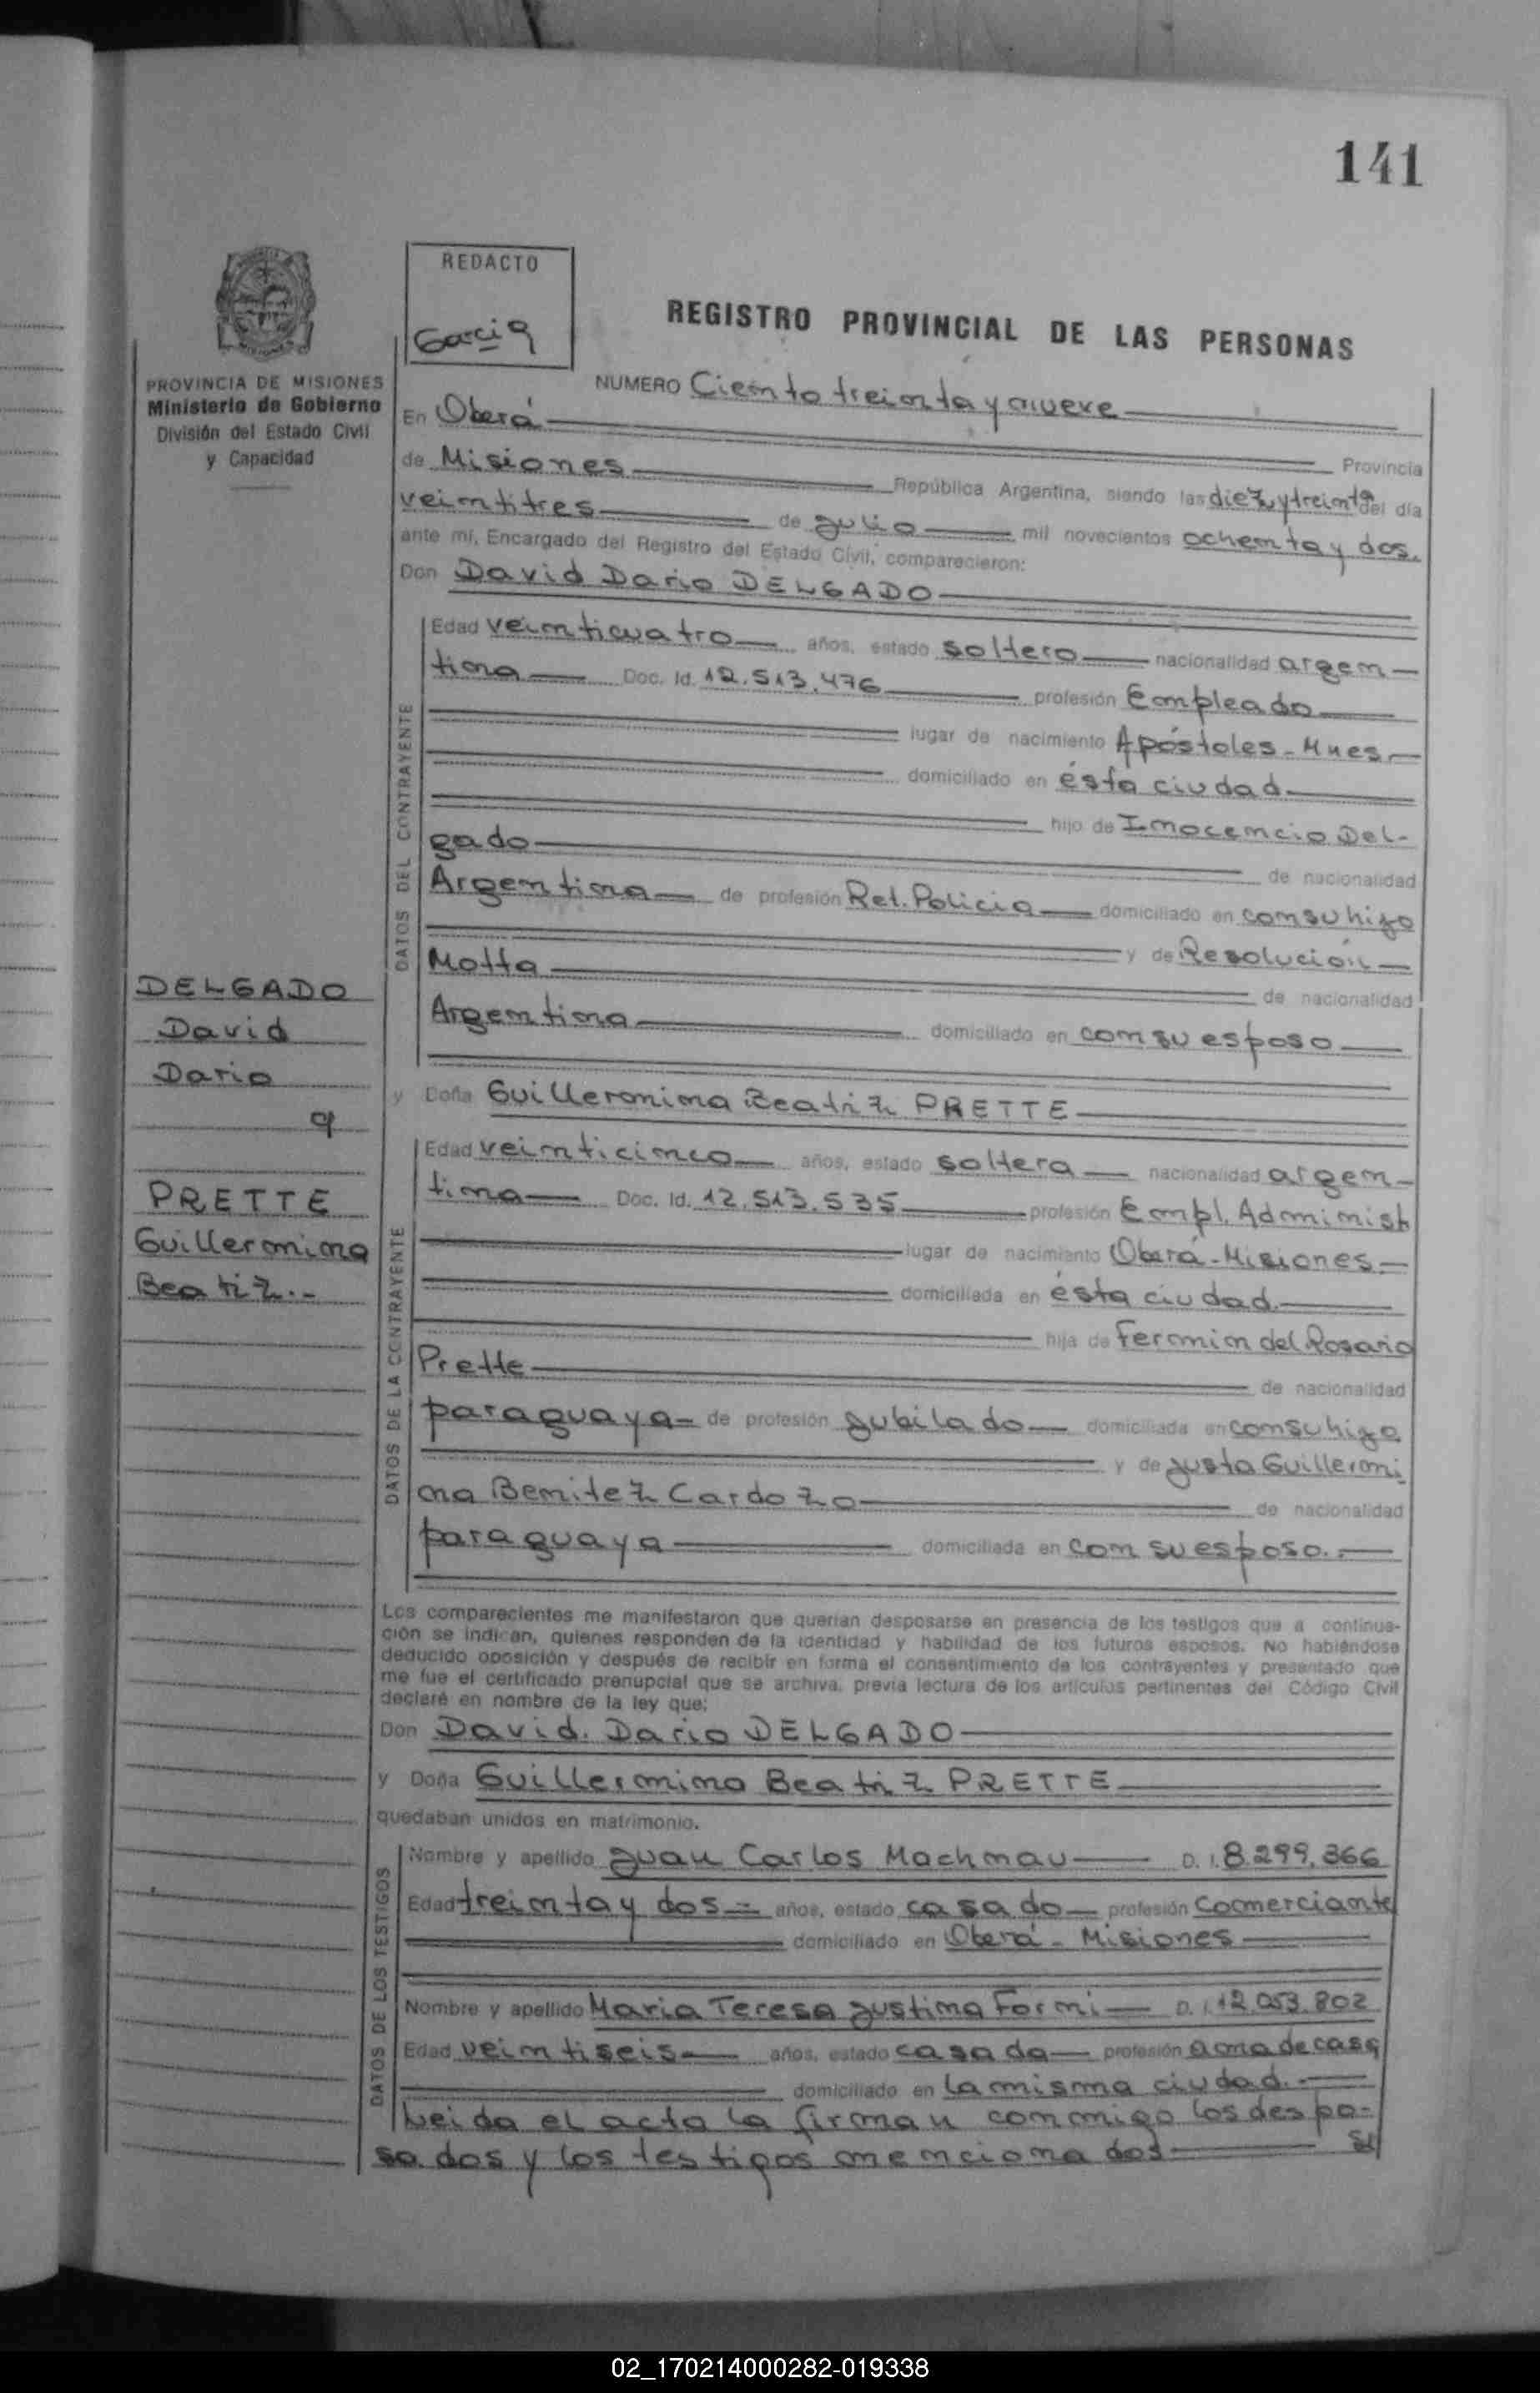 141
REDACTO
Garcia
REGISTRO PROVINCIAL DE LAS PERSONAS
PROVINCIA DE MISIONES
Ministerio de Gobierno
División del Estado Civil
y Capacidad
NUMERO Ciento treinta y nueve
En Oberá
Provincia
de Misiones República Argentina, siendo las diez y treinta del día
veintitres de Julio mil novecientos ochenta y dos.
ante mí, Encargado del Registro del Estado Civil, comparecieron:
Don David Dario DELGADO
DATOS DEL CONTRAYENTE
Edad veinticuatro años, estado soltero nacionalidad argen-
tina Doc. Id. 12.513.476 profesión Empleado
lugar de nacimiento Apóstoles - Mnes.
domiciliado en ésta ciudad.
hijo de Inocencio Del-
gado de nacionalidad
Argentina de profesión Ret. Policia domiciliado en con su hijo
y de Resolución
Motta de nacionalidad
Argentina domiciliado en con su esposo
y Doña Guillermina Beatriz PRETTE
DATOS DE LA CONTRAYENTE
Edad veinticinco años, estado soltera nacionalidad argen-
tina Doc. Id. 12.513.535 profesión Empl. Administ
lugar de nacimiento Oberá - Misiones.
domiciliada en ésta ciudad.
hija de Fermin del Rosario
Prette de nacionalidad
paraguaya de profesión Jubilado domiciliada en con su hija
y de Justa Guillermi
na Benitez Cardozo de nacionalidad
paraguaya domiciliada en con su esposo.
DELGADO
David
Dario
y
PRETTE
Guillermina
Beatriz.-
Los comparecientes me manifestaron que querían desposarse en presencia de los testigos que a continua-
ción se indican, quienes responden de la identidad y habilidad de los futuros esposos. No habiéndose
deducido oposición y después de recibir en forma el consentimiento de los contrayentes y presentado que
me fue el certificado prenupcial que se archiva, previa lectura de los artículos pertinentes del Código Civil
declaré en nombre de la ley que:
Don David. Dario DELGADO
y Doña Guillermina Beatriz PRETTE
quedaban unidos en matrimonio.
DATOS DE LOS TESTIGOS
Nombre y apellido Juan Carlos Machnau D. I. 8.299.366
Edad treinta y dos años, estado casado profesión Comerciante
domiciliado en Oberá - Misiones
Nombre y apellido Maria Teresa Justina Forni D. I. 12.053.802
Edad veintiseis años, estado casada profesión ama de casa
domiciliado en la misma ciudad.
Leida el acta la firman conmigo los despo-
sados y los testigos mencionados
02_170214000282-019338